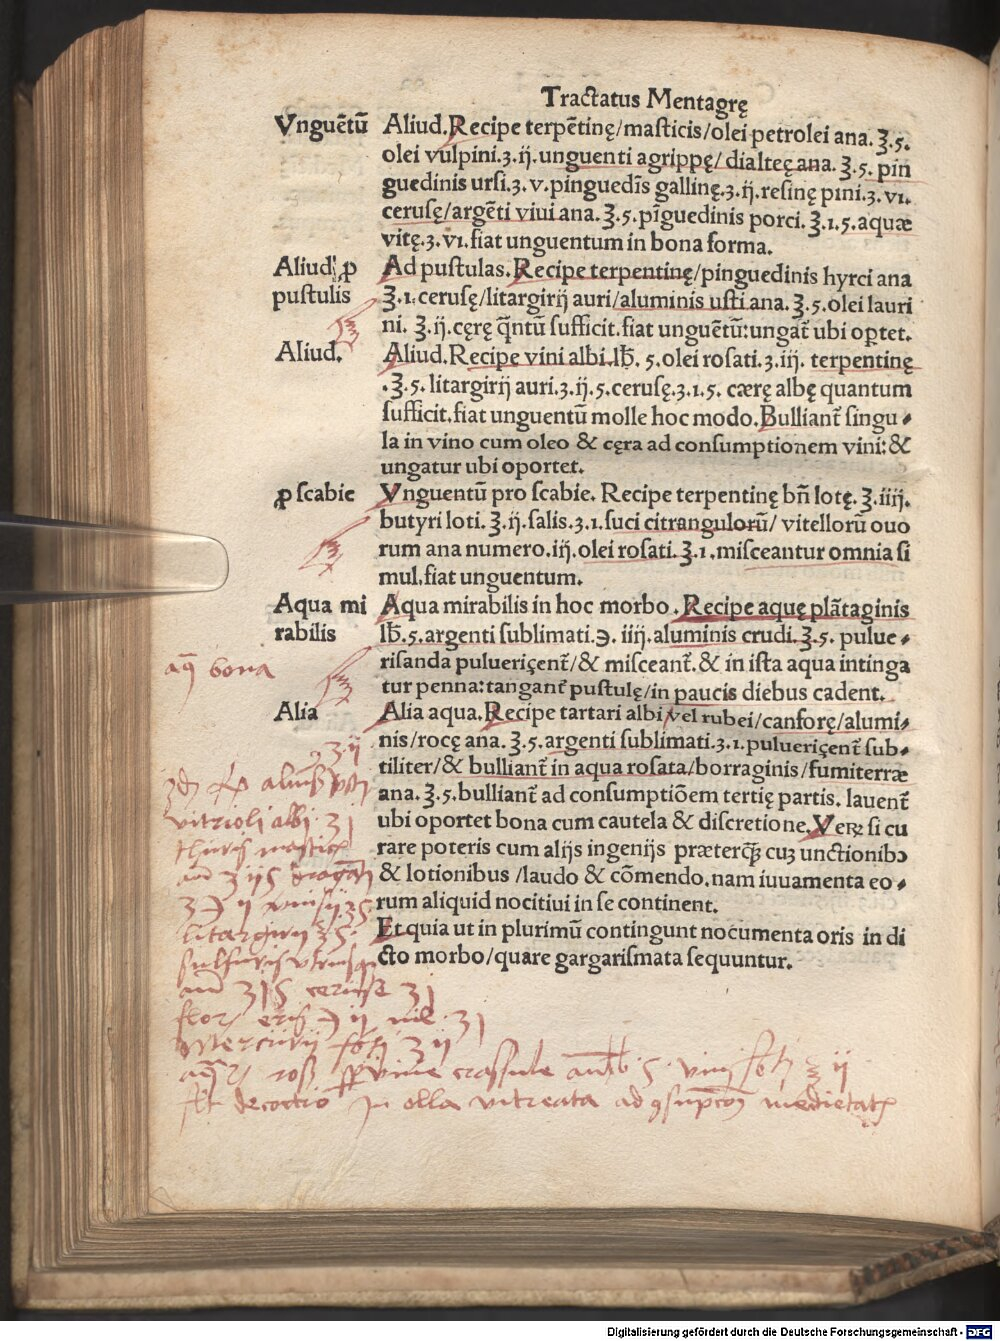 Tractatus Mentagrę
Vnguētū Aliud. Recipe terpētinę/masticis/olei petrolei ana. ℥.5.
olei vulpini.ʒ.ij.unguenti agrippę/dialteę ana. ℥.5. pin
guedinis ursi.ʒ.v.pinguedīs gallinę.ʒ.ij.resinę pini.ʒ.vi.
cerusę/argēti viui ana. ℥.5.pīguedinis porci. ℥.1.5.aquæ
vitę.ʒ.vi.fiat unguentum in bona forma.
Aliud ꝓ Ad pustulas. Recipe terpentinę/pinguedinis hyrci ana
pustulis ℥.1.cerusę/litargirij auri/aluminis usti ana. ℥.5.olei lauri
ni. ℥.ij.cęrę q̄ntū sufficit.fiat unguētū:ungat̄ ubi oꝑtet.
Aliud. Aliud. Recipe vini albi.lb̄. 5.olei rosati.ʒ.iij. terpentinę
.℥.5.litargirij auri.ʒ.ij.5.cerusę.ʒ.1.5. cærę albę quantum
sufficit.fiat unguentū molle hoc modo. Bulliant̄ singu
la in vino cum oleo & cęra ad consumptionem vini:&
ungatur ubi oportet.
ꝓ scabie Vnguentū pro scabie. Recipe terpentinę bn̄ lotę. ℥.iiij.
butyri loti. ℥.ij.salis.ʒ.1.suci citrangulorū/ vitellorū ouo
rum ana numero.iij.olei rosati. ℥.1.misceantur omnia si
mul.fiat unguentum.
Aqua mi Aqua mirabilis in hoc morbo. Recipe aquę plātaginis
rabilis lb̄.5.argenti sublimati.℈. iiij.aluminis crudi. ℥.5. pulue
risanda pulueriçent̄/& misceant̄.& in ista aqua intinga
aq̄ bona
tur penna:tangant̄ pustulę/in paucis diebus cadent.
Alia Alia aqua. Recipe tartari albi/vel rubei/canforę/alumi
nis/rocę ana. ℥.5.argenti sublimati.ʒ.1.pulueriçent̄ sub
tiliter/& bulliant̄ in aqua rosata/borraginis/fumiterræ
ana. ℥.5.bulliant̄ ad consumptiōem tertię partis. lauent̄
ubi oportet bona cum cautela & discretione. Veꝝ si cu
rare poteris cum alijs ingenijs præterq̄ꝫ cuꝫ unctionibꝰ
& lotionibus /laudo & cōmendo.nam iuuamenta eo
rum aliquid nocitiui in se continent.
Et quia ut in plurimū contingunt nocumenta oris in di
cto morbo/quare gargarismata sequuntur.
vitrioli albi ʒ1
litargirij ʒ5
ceruse ʒ1
Mercurij ʒ ij
decoctio in olla vitreata ad medietatē
Digitalisierung gefördert durch die Deutsche Forschungsgemeinschaft - DFG